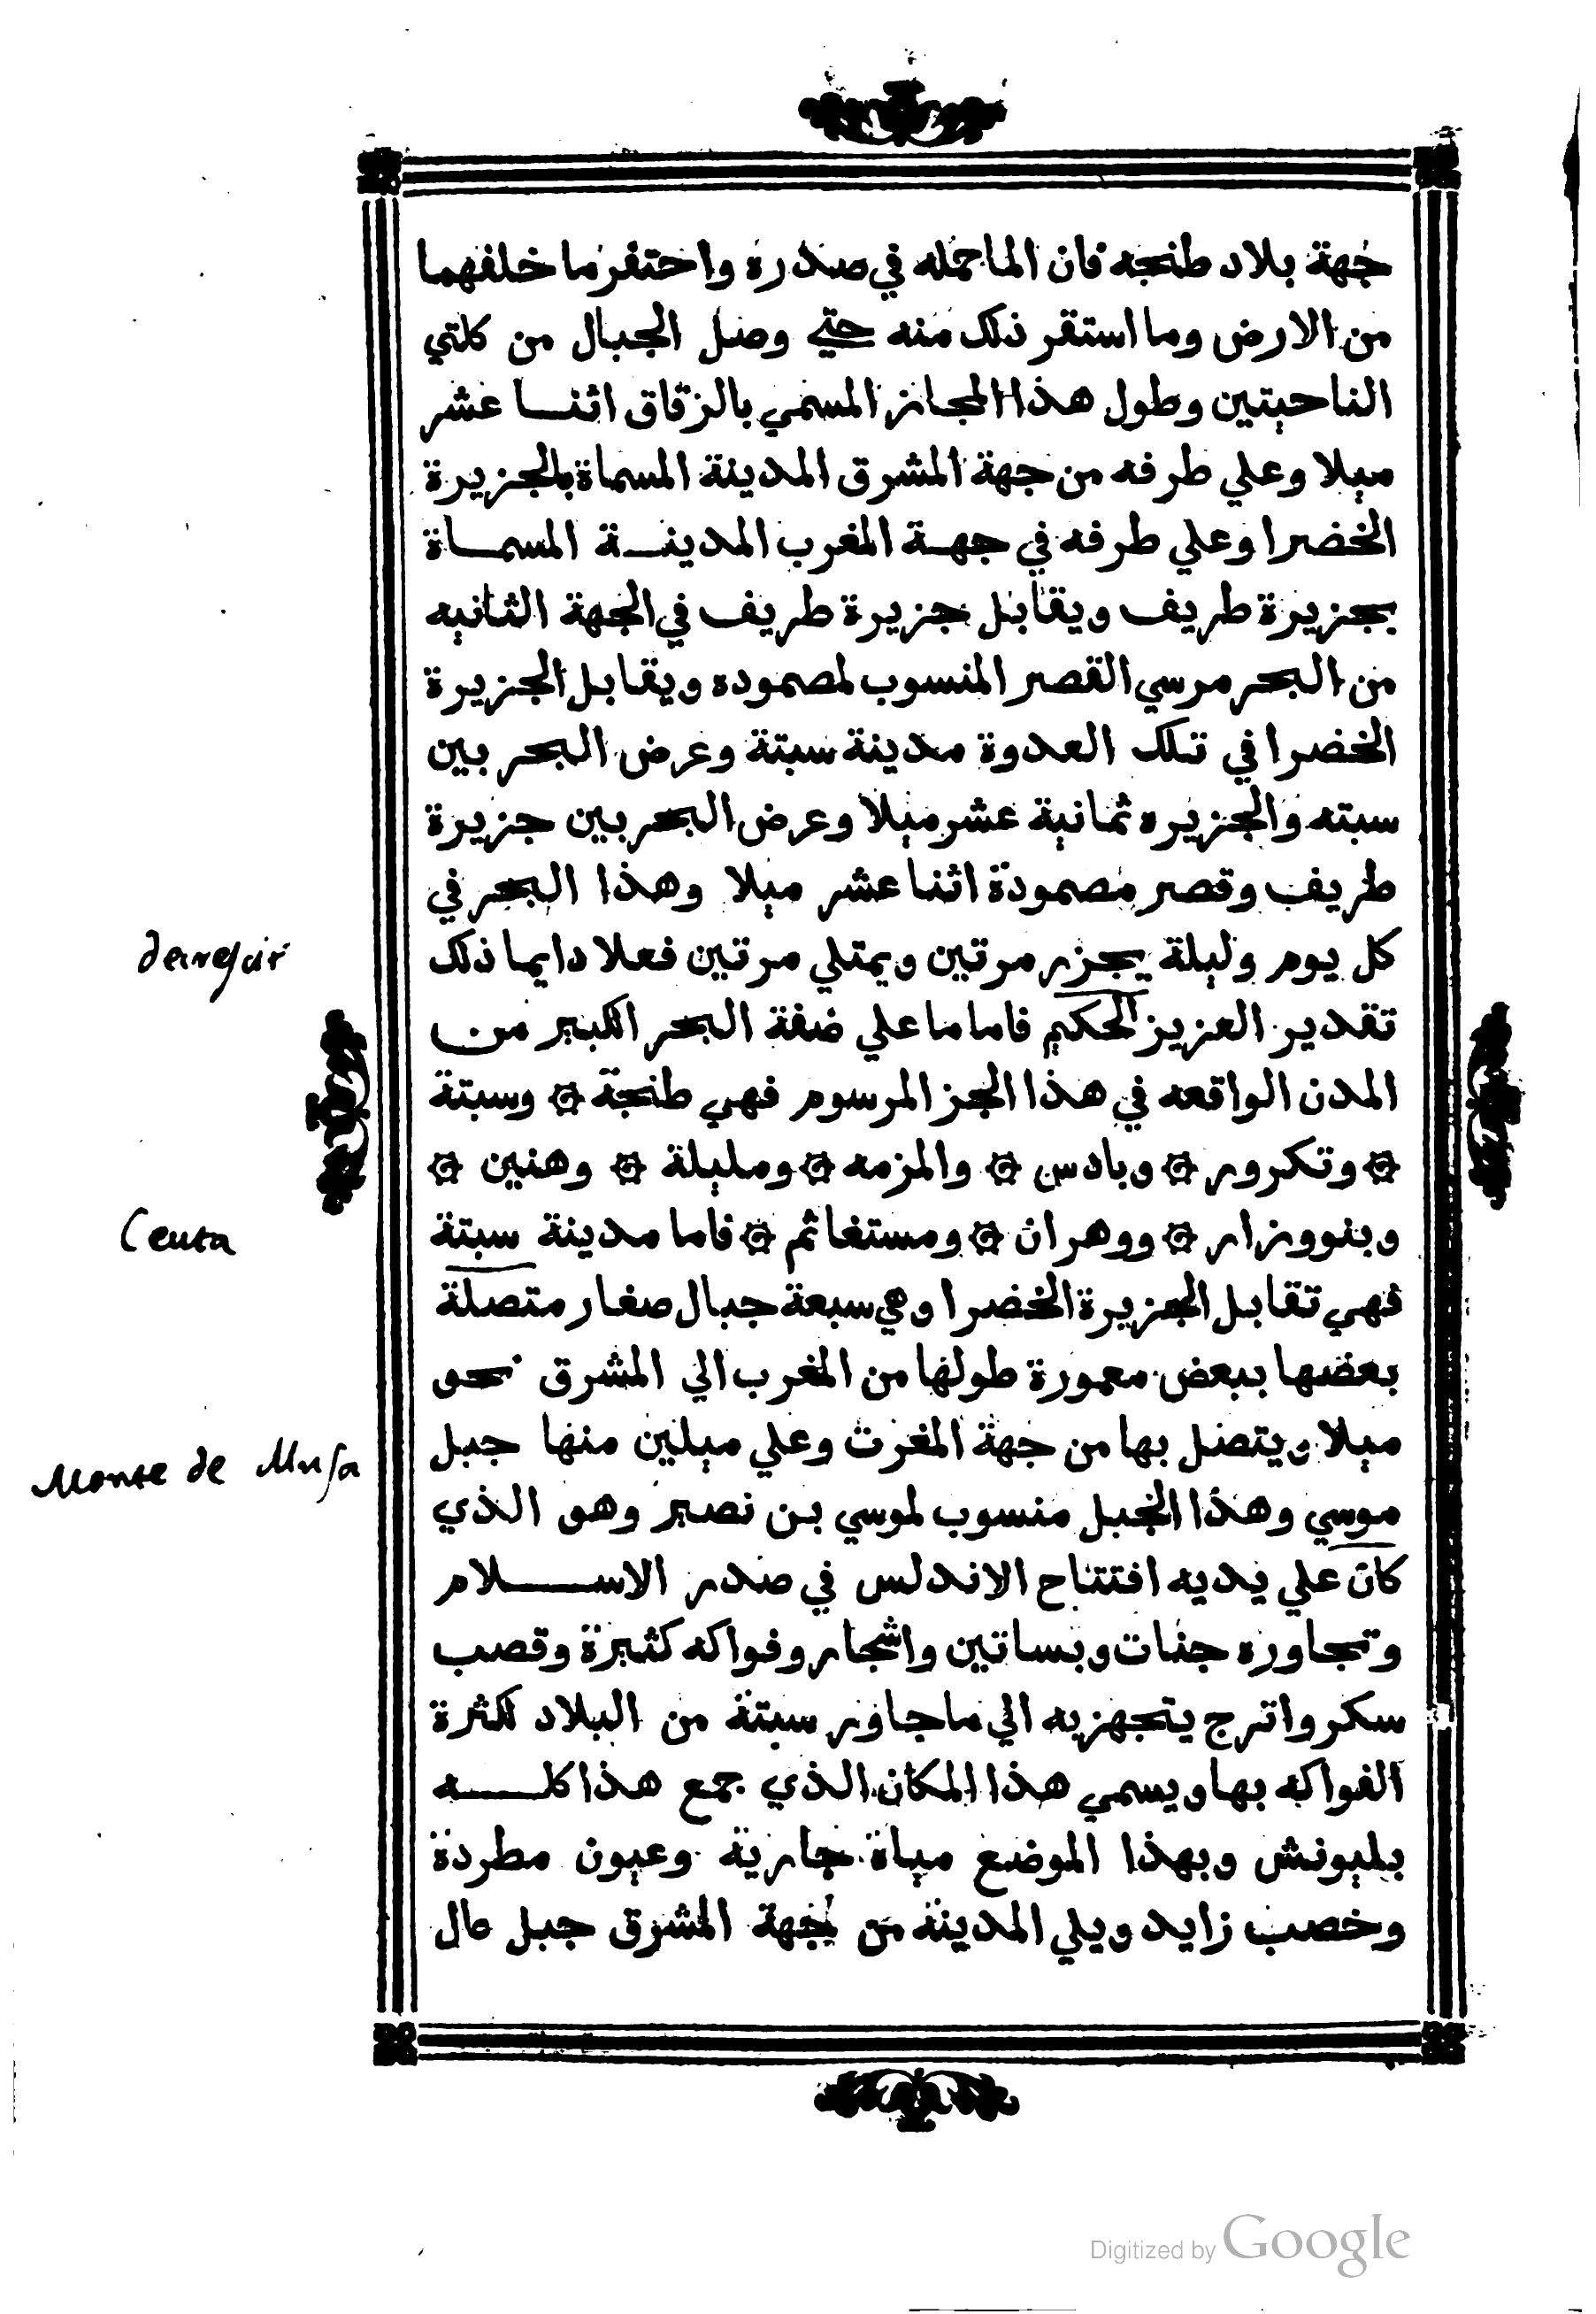 جهة بلاد طنجه فان الماحمله في صدره واحتفر ما خلفهما
من الارض وما استقر ذلك منه حتي وصل الجبال من كلتي
الناحيتين وطول هذا المجاز المسمي بالزقاق اثنـا عشر
ميلا وعلي طرفه من جهة المشرق المدينة المسماة بالجزيرة
الخضرا وعلي طرفه في جهـة المغرب المدينـة المسمـاة
بجزيرة طريف ويقابل جزيرة طريف في الجهة الثانيه
من البحر مرسي القصر المنسوب لمصموده ويقابل الجزيرة
الخضرا في تلك العدوة مدينة سبتة وعرض البحر بين
سبته والجزيره ثمانية عشر ميلا وعرض البحر بين جزيرة
طريف وقصر مصمودة اثنا عشر ميلا وهذا البحر في
كل يوم وليلة يجزر مرتين ويمتلي مرتين فعلا دايما ذلك
تقدير العزيز الحكيم فاما ما علي ضفة البحر الكبير من
المدن الواقعه في هذا الجز المرسوم فهي طنجة ۞ وسبتة
۞ وتكرور ۞ وبادس ۞ والمزمه ۞ ومليلة ۞ وهنين ۞
وبنووزار ۞ ووهران ۞ ومستغاثم ۞ فاما مدينة سبتة
فهي تقابل الجزيرة الخضرا وهي سبعة جبال صغار متصلة
بعضها ببعض معمورة طولها من المغرب الي المشرق نحو
ميلا ويتصل بها من جهة المغرب وعلي ميلين منها جبل
موسي وهذا الجبل منسوب لموسي بن نصير وهو الذي
كان علي يديه افتتاح الاندلس في صدر الاسـلام
وتجاوره جنات وبساتين واشجار وفواكه كثيرة وقصب
سكر واترج يتجهز به الي ما جاور سبتة من البلاد لكثرة
الفواكه بها ويسمي هذا المكان الذي جمع هذا كلـه
بليونش وبهذا الموضع مياة جارية وعيون مطردة
وخصب زايد ويلي المدينة من جهة المشرق جبل عال
Ceuta
Monte de Musa
Digitized by Google